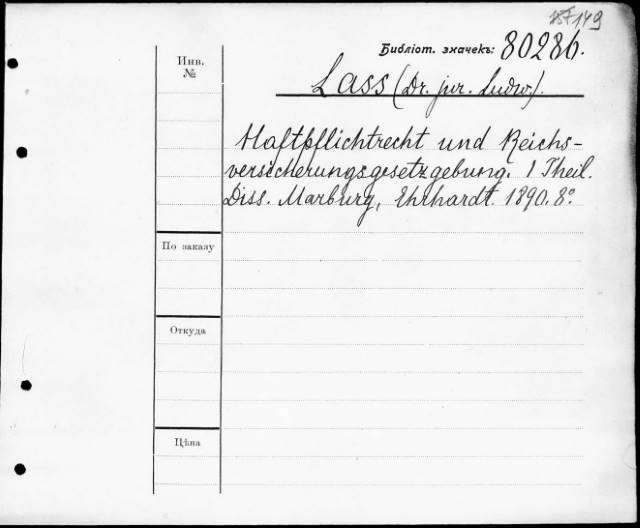 149
Библіот. значекъ: 80286.
Инв.
№
Lass (Dr. jur. Ludw.).
Haftpflichtrecht und Reichs-
versicherungsgesetzgebung. 1 Theil.
Diss. Marburg, Ehrhardt. 1890. 8°.
По заказу
Откуда
Цѣна